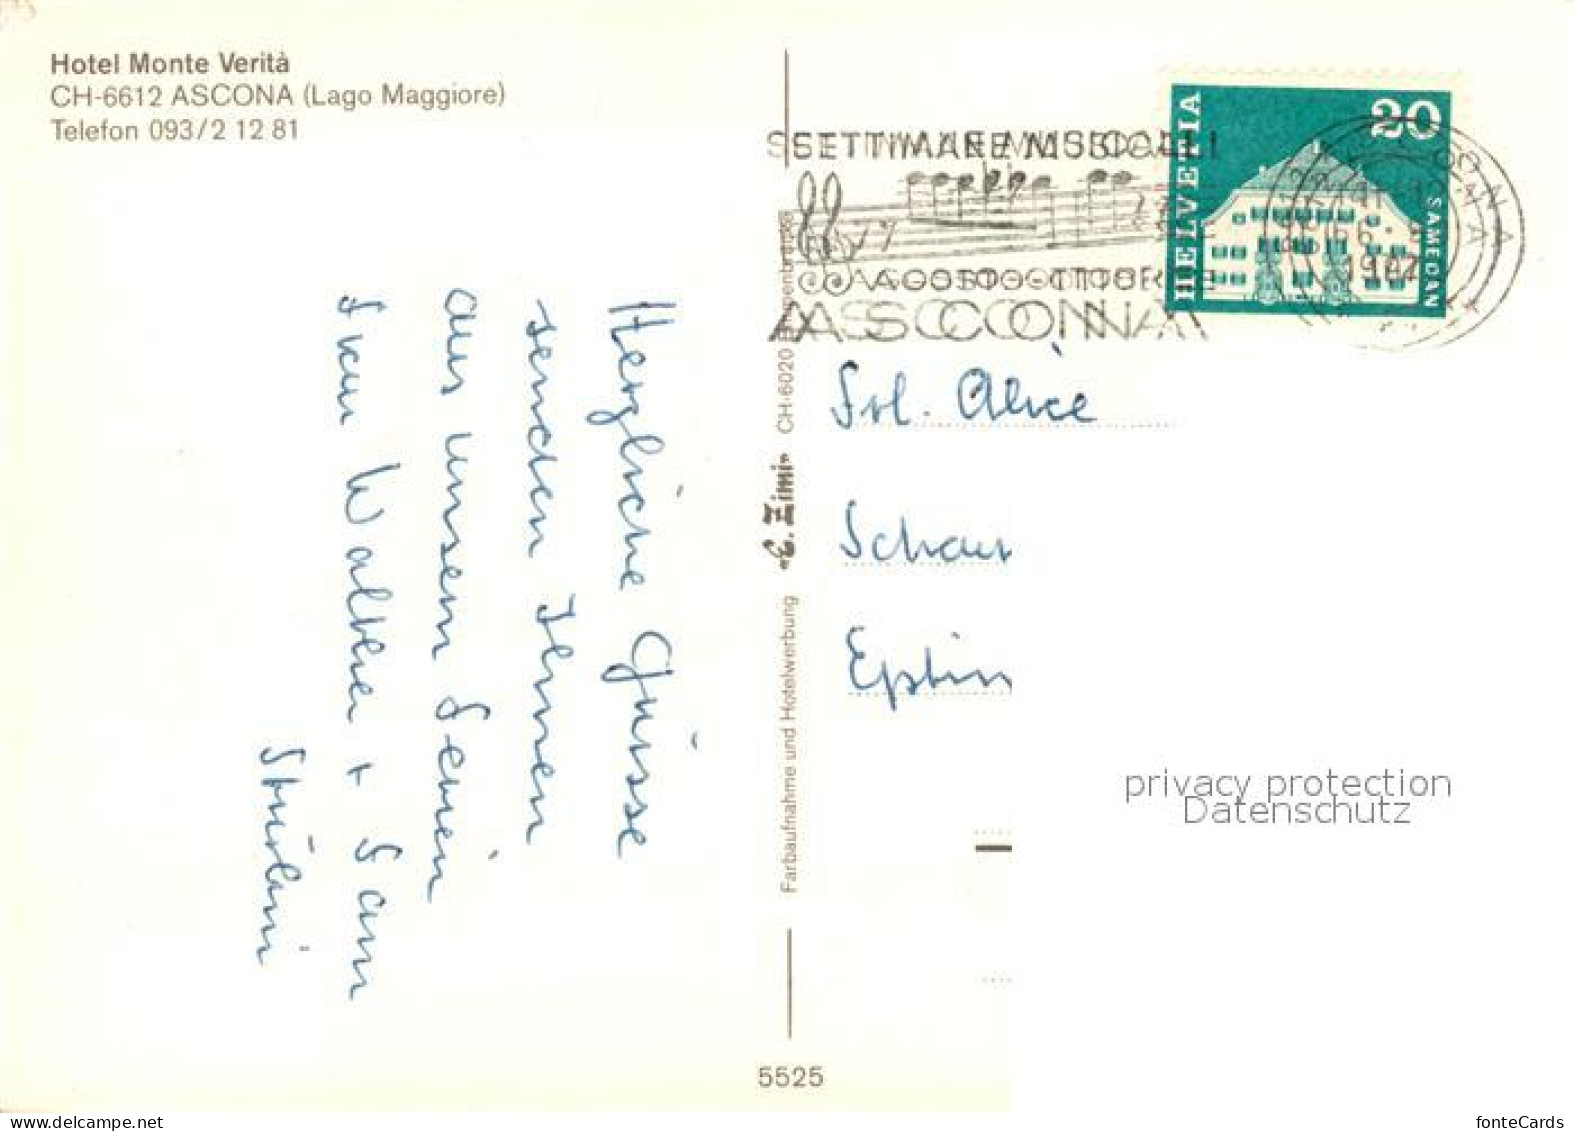 Hotel Monte Verità
CH-6612 ASCONA (Lago Maggiore)
Telefon 093/2 12 81
Herzliche Grüsse
senden Ihnen
aus unsern Ferien
Frau Walther + Fam
SETTIMANE MUSICALI
AGOSTO-OTTOBRE
ASCONA
HELVETIA
20
SAMEDAN
Frl. Alice
Schau
Eptin
Farbaufnahme und Hotelwerbung
CH-6020 Emmenbrücke
5525
privacy protection
Datenschutz
www.delcampe.net
fonteCards